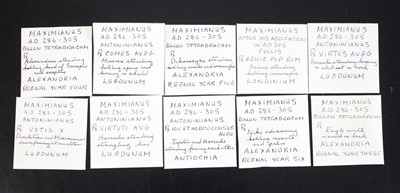 MAXIMIANUS
AD 286-305
BILLON TETRADRACHM
R
ALEXANDRIA
REGNAL YEAR FOUR
MAXIMIANUS
AD 286-305
ANTONINIANUS
R COMES AUGG
Minerva standing
holding spear and
leaning on shield
LUGDUNUM
MAXIMIANUS
AD 286-305
BILLON TETRADRACHM
R
standing
holding
ALEXANDRIA
REGNAL YEAR FIVE
MAXIMIANUS
AFTER HIS ABDICATION
IN AD 305
FOLLIS
R GENIO POP ROM
Genius standing
holding cornucopia
LONDINIUM
MAXIMIANUS
AD 286-305
ANTONINIANUS
R VIRTUS AUGG
Hercules
LUGDUNUM
MAXIMIANUS
AD 286-305
ANTONINIANUS
R VOTIS X
Diocletian and Maximianus
sacrificing at an altar
LUGDUNUM
MAXIMIANUS
AD 286-305
ANTONINIANUS
R VIRTUTI AUGG
Hercules standing
strangling lion
LUGDUNUM
MAXIMIANUS
AD 286-305
ANTONINIANUS
R IOV ET HERCU CONSER
AUGG
Jupiter and Hercules
standing facing each other
ANTIOCHIA
MAXIMIANUS
AD 286-305
BILLON TETRADRACHM
R
Nike advancing
holding wreath and
palm
ALEXANDRIA
REGNAL YEAR SIX
MAXIMIANUS
AD 286-305
BILLON TETRADRACHM
R
Eagle with
wreath in beak
ALEXANDRIA
REGNAL YEAR THREE